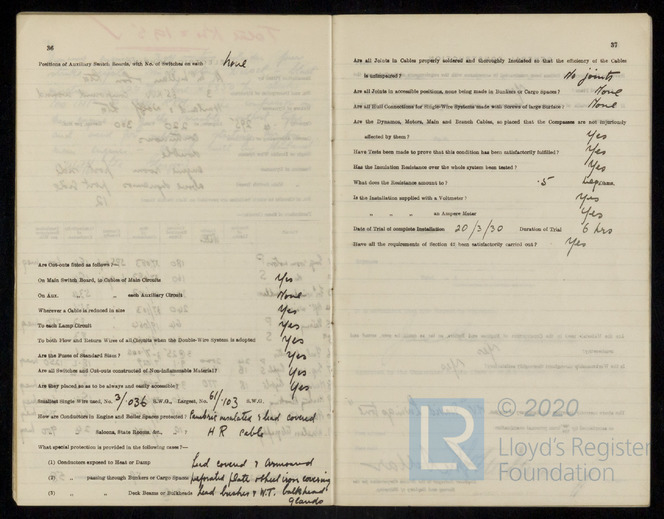 36
Positions of Auxiliary Switch Boards, with No. of Switches on each None
Are Cut-outs fitted as follows?—
On Main Switch Board, to Cables of Main Circuits Yes
On Aux. „ „ each Auxiliary Circuit None
Wherever a Cable is reduced in size Yes
To each Lamp Circuit Yes
To both Flow and Return Wires of all Circuits when the Double-Wire System is adopted Yes
Are the Fuses of Standard Sizes? Yes
Are all Switches and Cut-outs constructed of Non-inflammable Material? Yes
Are they placed so as to be always and easily accessible? Yes
Smallest Single Wire used, No. 3/036 S.W.G., Largest, No. 61/.103 S.W.G.
How are Conductors in Engine and Boiler Spaces protected? Cambric insulated & lead covered
„ Saloons, State Rooms, &c., „ ? H R cable
What special protection is provided in the following cases?—
(1) Conductors exposed to Heat or Damp Lead covered & Armoured
(2) „ passing through Bunkers or Cargo Spaces perforated plate sheet iron covering
(3) „ „ Deck Beams or Bulkheads Lead bushes & W.T. bulkhead
glands
37
Are all Joints in Cables properly soldered and thoroughly Insulated so that the efficiency of the Cables
is unimpaired? No joints
Are all Joints in accessible positions, none being made in Bunkers or Cargo Spaces? None
Are all Hull Connections for Single-Wire Systems made with Screws of large Surface? None
Are the Dynamos, Motors, Main and Branch Cables, so placed that the Compasses are not injuriously
affected by them? Yes
Have Tests been made to prove that this condition has been satisfactorily fulfilled? Yes
Has the Insulation Resistance over the whole system been tested? Yes
What does the Resistance amount to? .5 Megohms.
Is the Installation supplied with a Voltmeter? Yes
„ „ „ an Ampere Meter Yes
Date of Trial of complete Installation 20/3/30 Duration of Trial 6 hrs
Have all the requirements of Section 42 been satisfactorily carried out? Yes
© 2020
LR
Lloyd's Register
Foundation